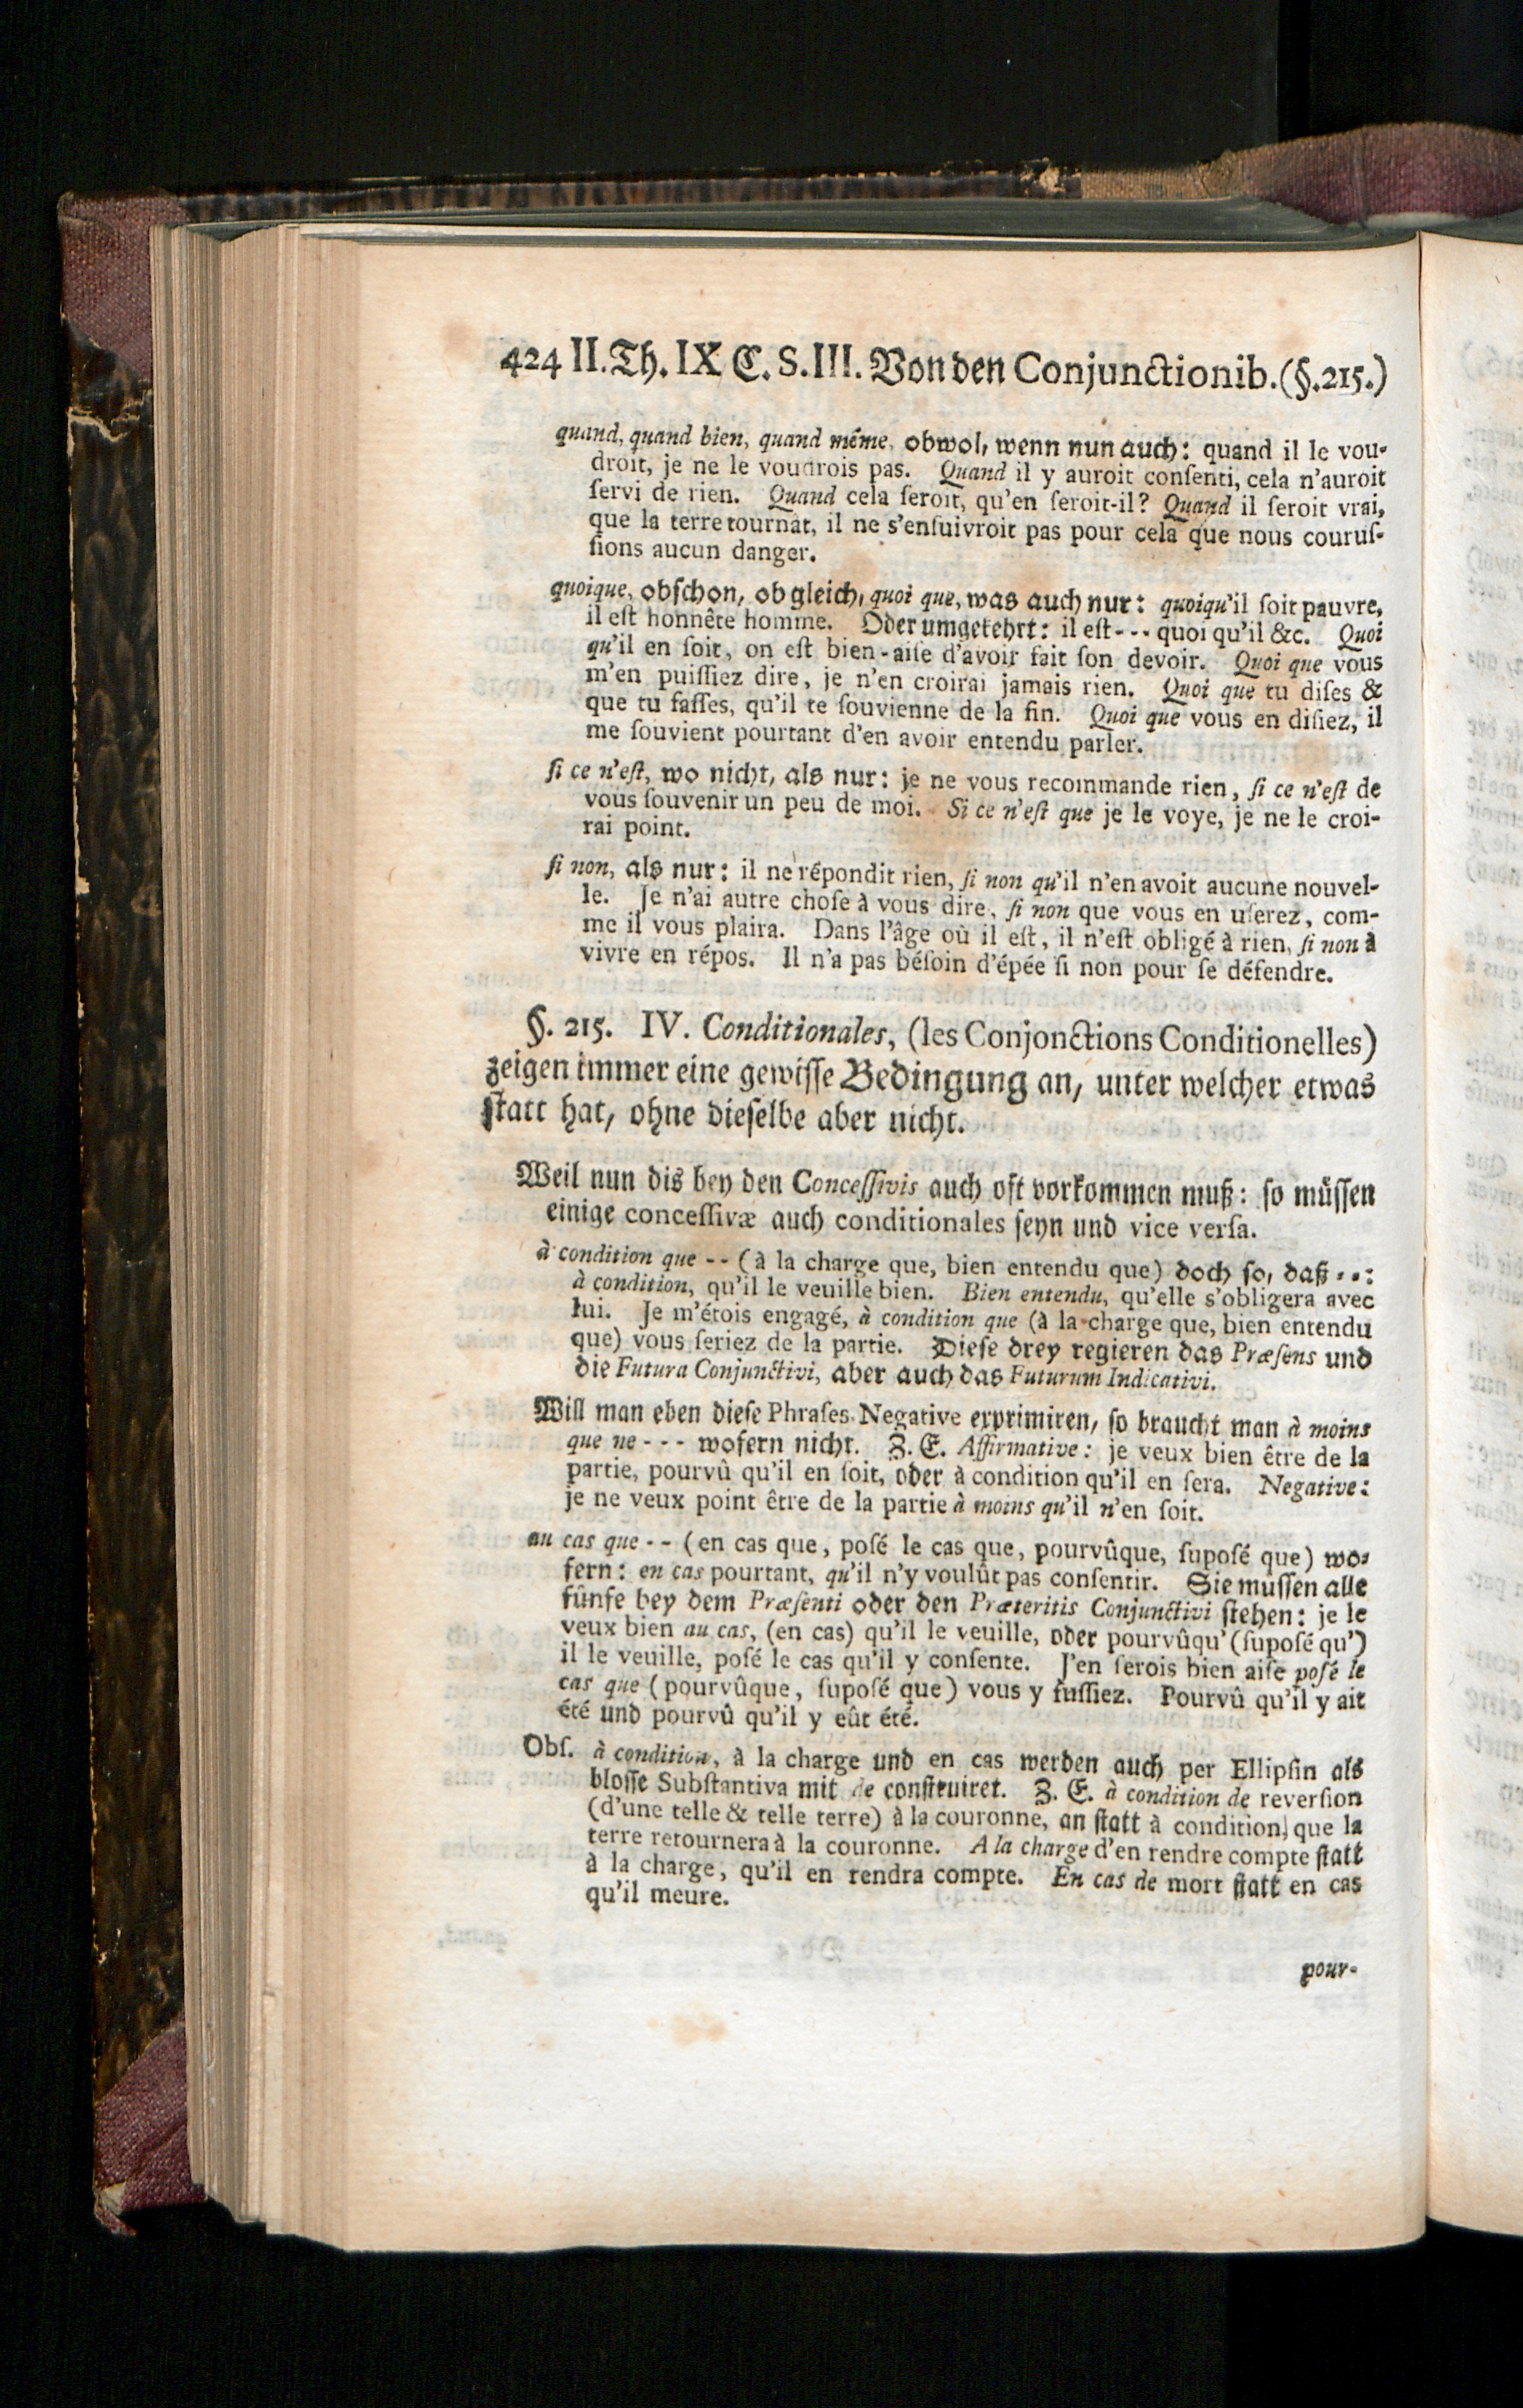 424 II. Th. IX C. S. III. Von den Conjunctionib. (§. 215.)
quand, quand bien, quand même, obwol, wenn nun auch: quand il le vou-
droit, je ne le voudrois pas. Quand il y auroit conſenti, cela n'auroit
ſervi de rien. Quand cela ſeroit, qu'en ſeroit-il? Quand il ſeroit vrai,
que la terre tournât, il ne s'enſuivroit pas pour cela que nous couruſ-
ſions aucun danger.
quoique, obſchon, obgleich, quoi que, was auch nur: quoiqu'il ſoit pauvre,
il eſt honnête homme. Oder umgekehrt: il eſt - - - quoi qu'il &c. Quoi
qu'il en ſoit, on eſt bien-aiſe d'avoir fait ſon devoir. Quoi que vous
m'en puiſſiez dire, je n'en croirai jamais rien. Quoi que tu diſes &
que tu faſſes, qu'il te ſouvienne de la fin. Quoi que vous en diſiez, il
me ſouvient pourtant d'en avoir entendu parler.
ſi ce n'eſt, wo nicht, als nur: je ne vous recommande rien, ſi ce n'eſt de
vous ſouvenir un peu de moi. Si ce n'eſt que je le voye, je ne le croi-
rai point.
ſi non, als nur: il ne répondit rien, ſi non qu'il n'en avoit aucune nouvel-
le. Je n'ai autre choſe à vous dire, ſi non que vous en uſerez, com-
me il vous plaira. Dans l'âge où il eſt, il n'eſt obligé à rien, ſi non à
vivre en répos. Il n'a pas béſoin d'épée ſi non pour ſe défendre.
§. 215. IV. Conditionales, (les Conjonctions Conditionelles)
zeigen immer eine gewiſſe Bedingung an, unter welcher etwas
ſtatt hat, ohne dieſelbe aber nicht.
Weil nun dis bey den Conceſſivis auch oft vorkommen muß: ſo müſſen
einige conceſſivæ auch conditionales ſeyn und vice verſa.
à condition que - - (à la charge que, bien entendu que) doch ſo, daß - -:
à condition, qu'il le veuille bien. Bien entendu, qu'elle s'obligera avec
lui. Je m'étois engagé, à condition que (à la charge que, bien entendu
que) vous ſeriez de la partie. Dieſe drey regieren das Præſens und
die Futura Conjunctivi, aber auch das Futurum Indicativi.
Will man eben dieſe Phraſes Negative exprimiren, ſo braucht man à moins
que ne - - - wofern nicht. Z. E. Affirmative: je veux bien être de la
partie, pourvû qu'il en ſoit, oder à condition qu'il en ſera. Negative:
je ne veux point être de la partie à moins qu'il n'en ſoit.
au cas que - - (en cas que, poſé le cas que, pourvûque, ſupoſé que) wo-
fern: en cas pourtant, qu'il n'y voulût pas conſentir. Sie müſſen alle
fünfe bey dem Præſenti oder den Præteritis Conjunctivi ſtehen: je le
veux bien au cas, (en cas) qu'il le veuille, oder pourvûqu' (ſupoſé qu')
il le veuille, poſé le cas qu'il y conſente. J'en ſerois bien aiſe poſé le
cas que (pourvûque, ſupoſé que) vous y fuſſiez. Pourvû qu'il y ait
été und pourvû qu'il y eût été.
Obſ. à condition, à la charge und en cas werden auch per Ellipſin als
bloſſe Subſtantiva mit de conſtruiret. Z. E. à condition de reverſion
(d'une telle & telle terre) à la couronne, an ſtatt à condition, que la
terre retournera à la couronne. A la charge d'en rendre compte ſtatt
à la charge, qu'il en rendra compte. En cas de mort ſtatt en cas
qu'il meure.
pour-